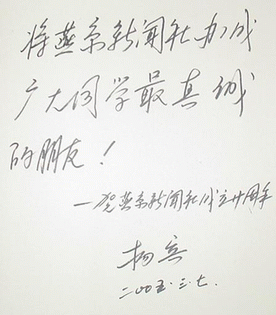 将燕京新闻社办成
广大同学最真诚
的朋友！
—贺燕京新闻社成立廿周年
杨宾
二〇〇五.三.七.